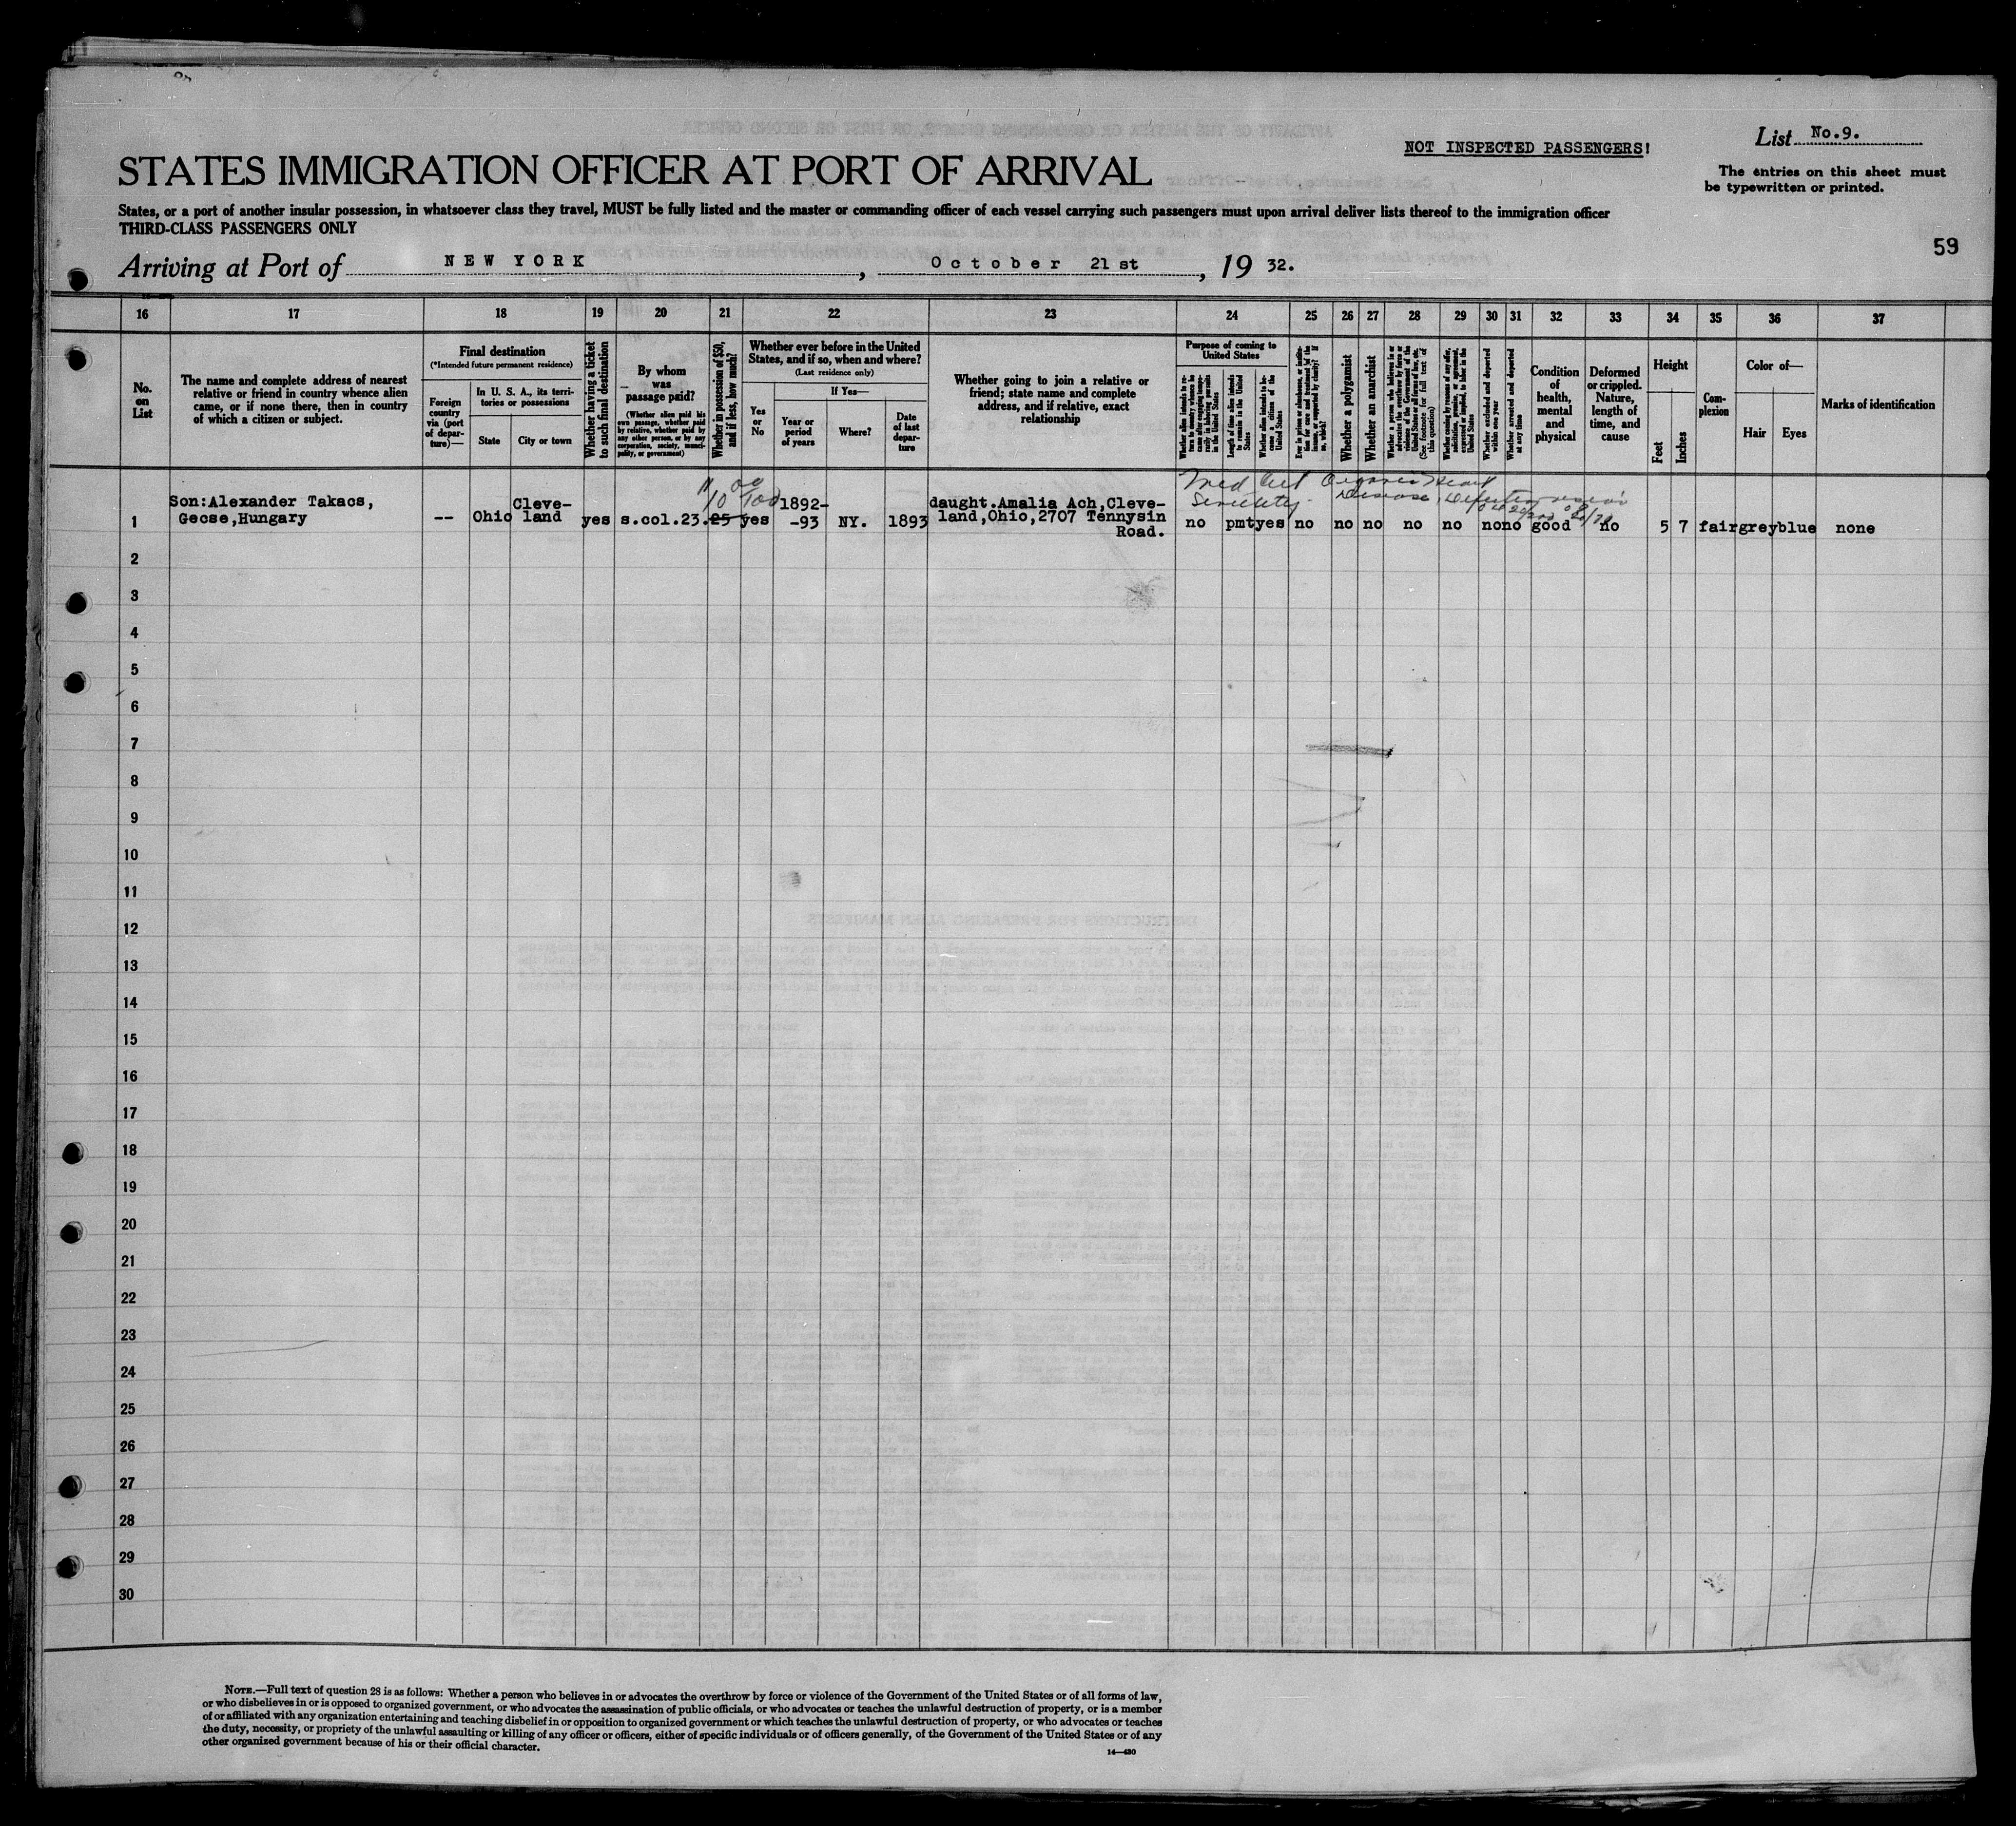 List No.9.
NOT INSPECTED PASSENGERS!
The entries on this sheet must
be typewritten or printed.
STATES IMMIGRATION OFFICER AT PORT OF ARRIVAL
States, or a port of another insular possession, in whatsoever class they travel, MUST be fully listed and the master or commanding officer of each vessel carrying such passengers must upon arrival deliver lists thereof to the immigration officer
THIRD-CLASS PASSENGERS ONLY
59
Arriving at Port of NEW YORK, October 21st, 19 32.
16 17 18 19 20 21 22 23 24 25 26 27 28 29 30 31 32 33 34 35 36 37
No.
on
List
The name and complete address of nearest
relative or friend in country whence alien
came, or if none there, then in country
of which a citizen or subject.
Final destination
(*Intended future permanent residence)
Foreign
country
via (port
of depar-
ture)—
In U. S. A., its terri-
tories or possessions
State
City or town
Whether having a ticket
to such final destination
By whom
was
passage paid?
(Whether alien paid his
own passage, whether paid
by relative, whether paid by
any other person, or by any
corporation, society, munici-
pality, or government)
Whether in possession of $50,
and if less, how much?
Whether ever before in the United
States, and if so, when and where?
(Last residence only)
Yes
or
No
If Yes—
Year or
period
of years
Where?
Date
of last
depar-
ture
Whether going to join a relative or
friend; state name and complete
address, and if relative, exact
relationship
Purpose of coming to
United States
Length of time alien intends
to remain in the United
States
Whether alien intends to be-
come a citizen of the
United States
Whether a polygamist
Whether an anarchist
(See footnote for full text of
this question)
Whether arrested and deported
at any time
Condition
of
health,
mental
and
physical
Deformed
or crippled.
Nature,
length of
time, and
cause
Height
Feet
Inches
Com-
plexion
Color of—
Hair
Eyes
Marks of identification
Med Cert Organic Heart
Senility. Disease,
1 Son:Alexander Takacs,
Gecse,Hungary
-- Ohio Cleve-
land
yes s.col.23. 25 yes 1892-
-93 NY. 1893
daught.Amalia Ach,Cleve-
land,Ohio,2707 Tennysin
Road.
no pmt yes no no no no no no no good no 5 7 fair grey blue none
2
3
4
5
6
7
8
9
10
11
12
13
14
15
16
17
18
19
20
21
22
23
24
25
26
27
28
29
30
NOTE.—Full text of question 28 is as follows: Whether a person who believes in or advocates the overthrow by force or violence of the Government of the United States or of all forms of law,
or who disbelieves in or is opposed to organized government, or who advocates the assassination of public officials, or who advocates or teaches the unlawful destruction of property, or is a member
of or affiliated with any organization entertaining and teaching disbelief in or opposition to organized government or which teaches the unlawful destruction of property, or who advocates or teaches
the duty, necessity, or propriety of the unlawful assaulting or killing of any officer or officers, either of specific individuals or of officers generally, of the Government of the United States or of any
other organized government because of his or their official character.
14—430